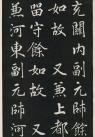 玄關內副元帥
如故又兼上都
留守餘如故又
兼河東副元帥